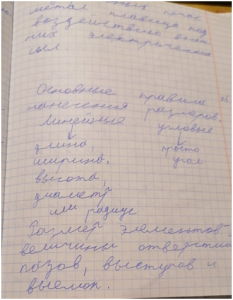 метал
под
воздействие
них электрических
сил
Основные правила
нанесения размеров.
линейные угловые
длина
ширина,
высота,
диаметр
или радиус
Размер элементов
величины отверстий
пазов, выступов и
выемок.